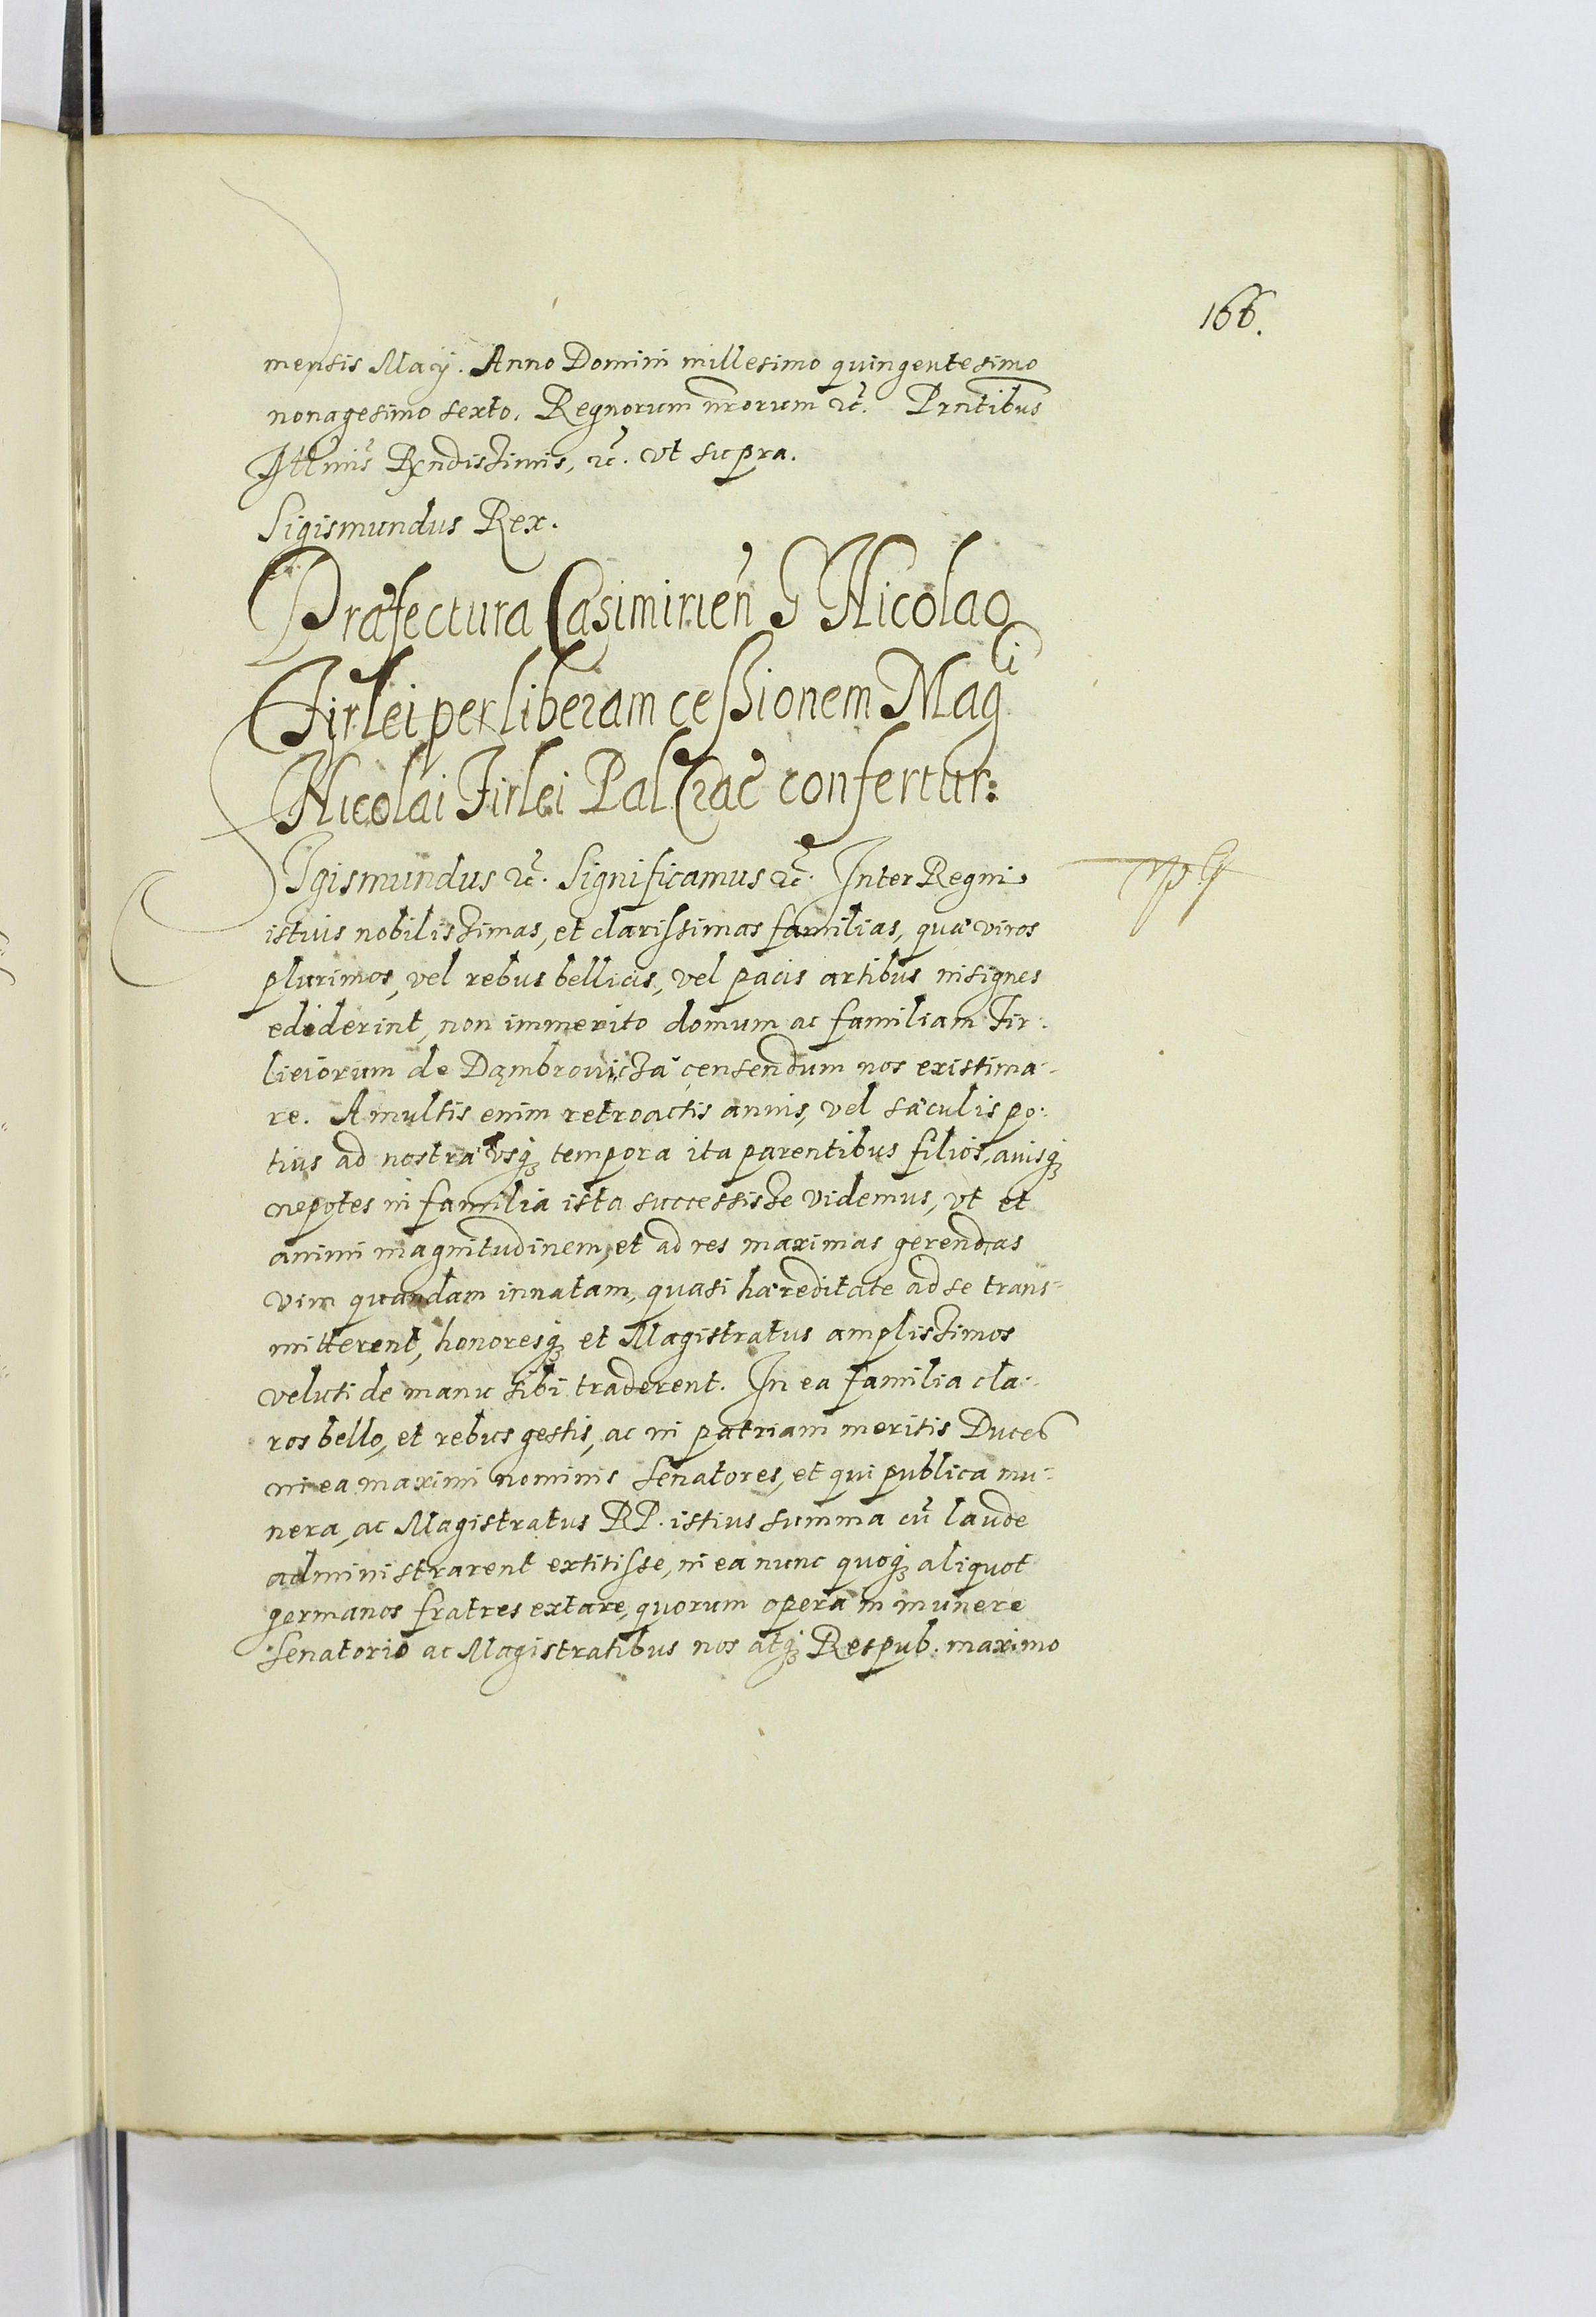 166.
mensis Maij. Anno Domini millesimo quingentesimo
nonagesimo sexto, Regnorum nrorum etc. Prntibus
Illmis Rndissimis, etc. vt supra.
Sigismundus Rex.
Præfectura Casimirien G Nicolao
Firlei per liberam cessionem Magci
Nicolai Firlei Pal Crac confertur:
Sigismundus etc. Significamus etc. Inter Regni
istius nobilissimas, et clarissimas familias, quæ viros
plurimos, vel rebus bellicis, vel pacis artibus insignes
ediderint, non immerito domum ac familiam Fir-
lieiorum de Dąmbrouicza censendum nos existima-
re. A multis enim retroactis annis, vel sæculis po-
tius ad nostra vsq tempora ita parentibus filios, auisq
nepotes in familia ista successisse videmus, vt et
animi magnitudinem, et ad res maximas gerendas
vim quandam innatam, quasi hæreditate ad se trans-
mitterent, honoresq et Magistratus amplissimos
veluti de manu sibi traderent. In ea familia cla-
ros bello, et rebus gestis, ac in patriam meritis Duces
in ea maximi nominis Senatores, et qui publica mu-
nera, ac Magistratus RP. istius summa cū laude
administrarent extitisse, in ea nunc quoq aliquot
germanos fratres extare, quorum opera in munere
Senatorio ac Magistratibus nos atq Respub. maximo